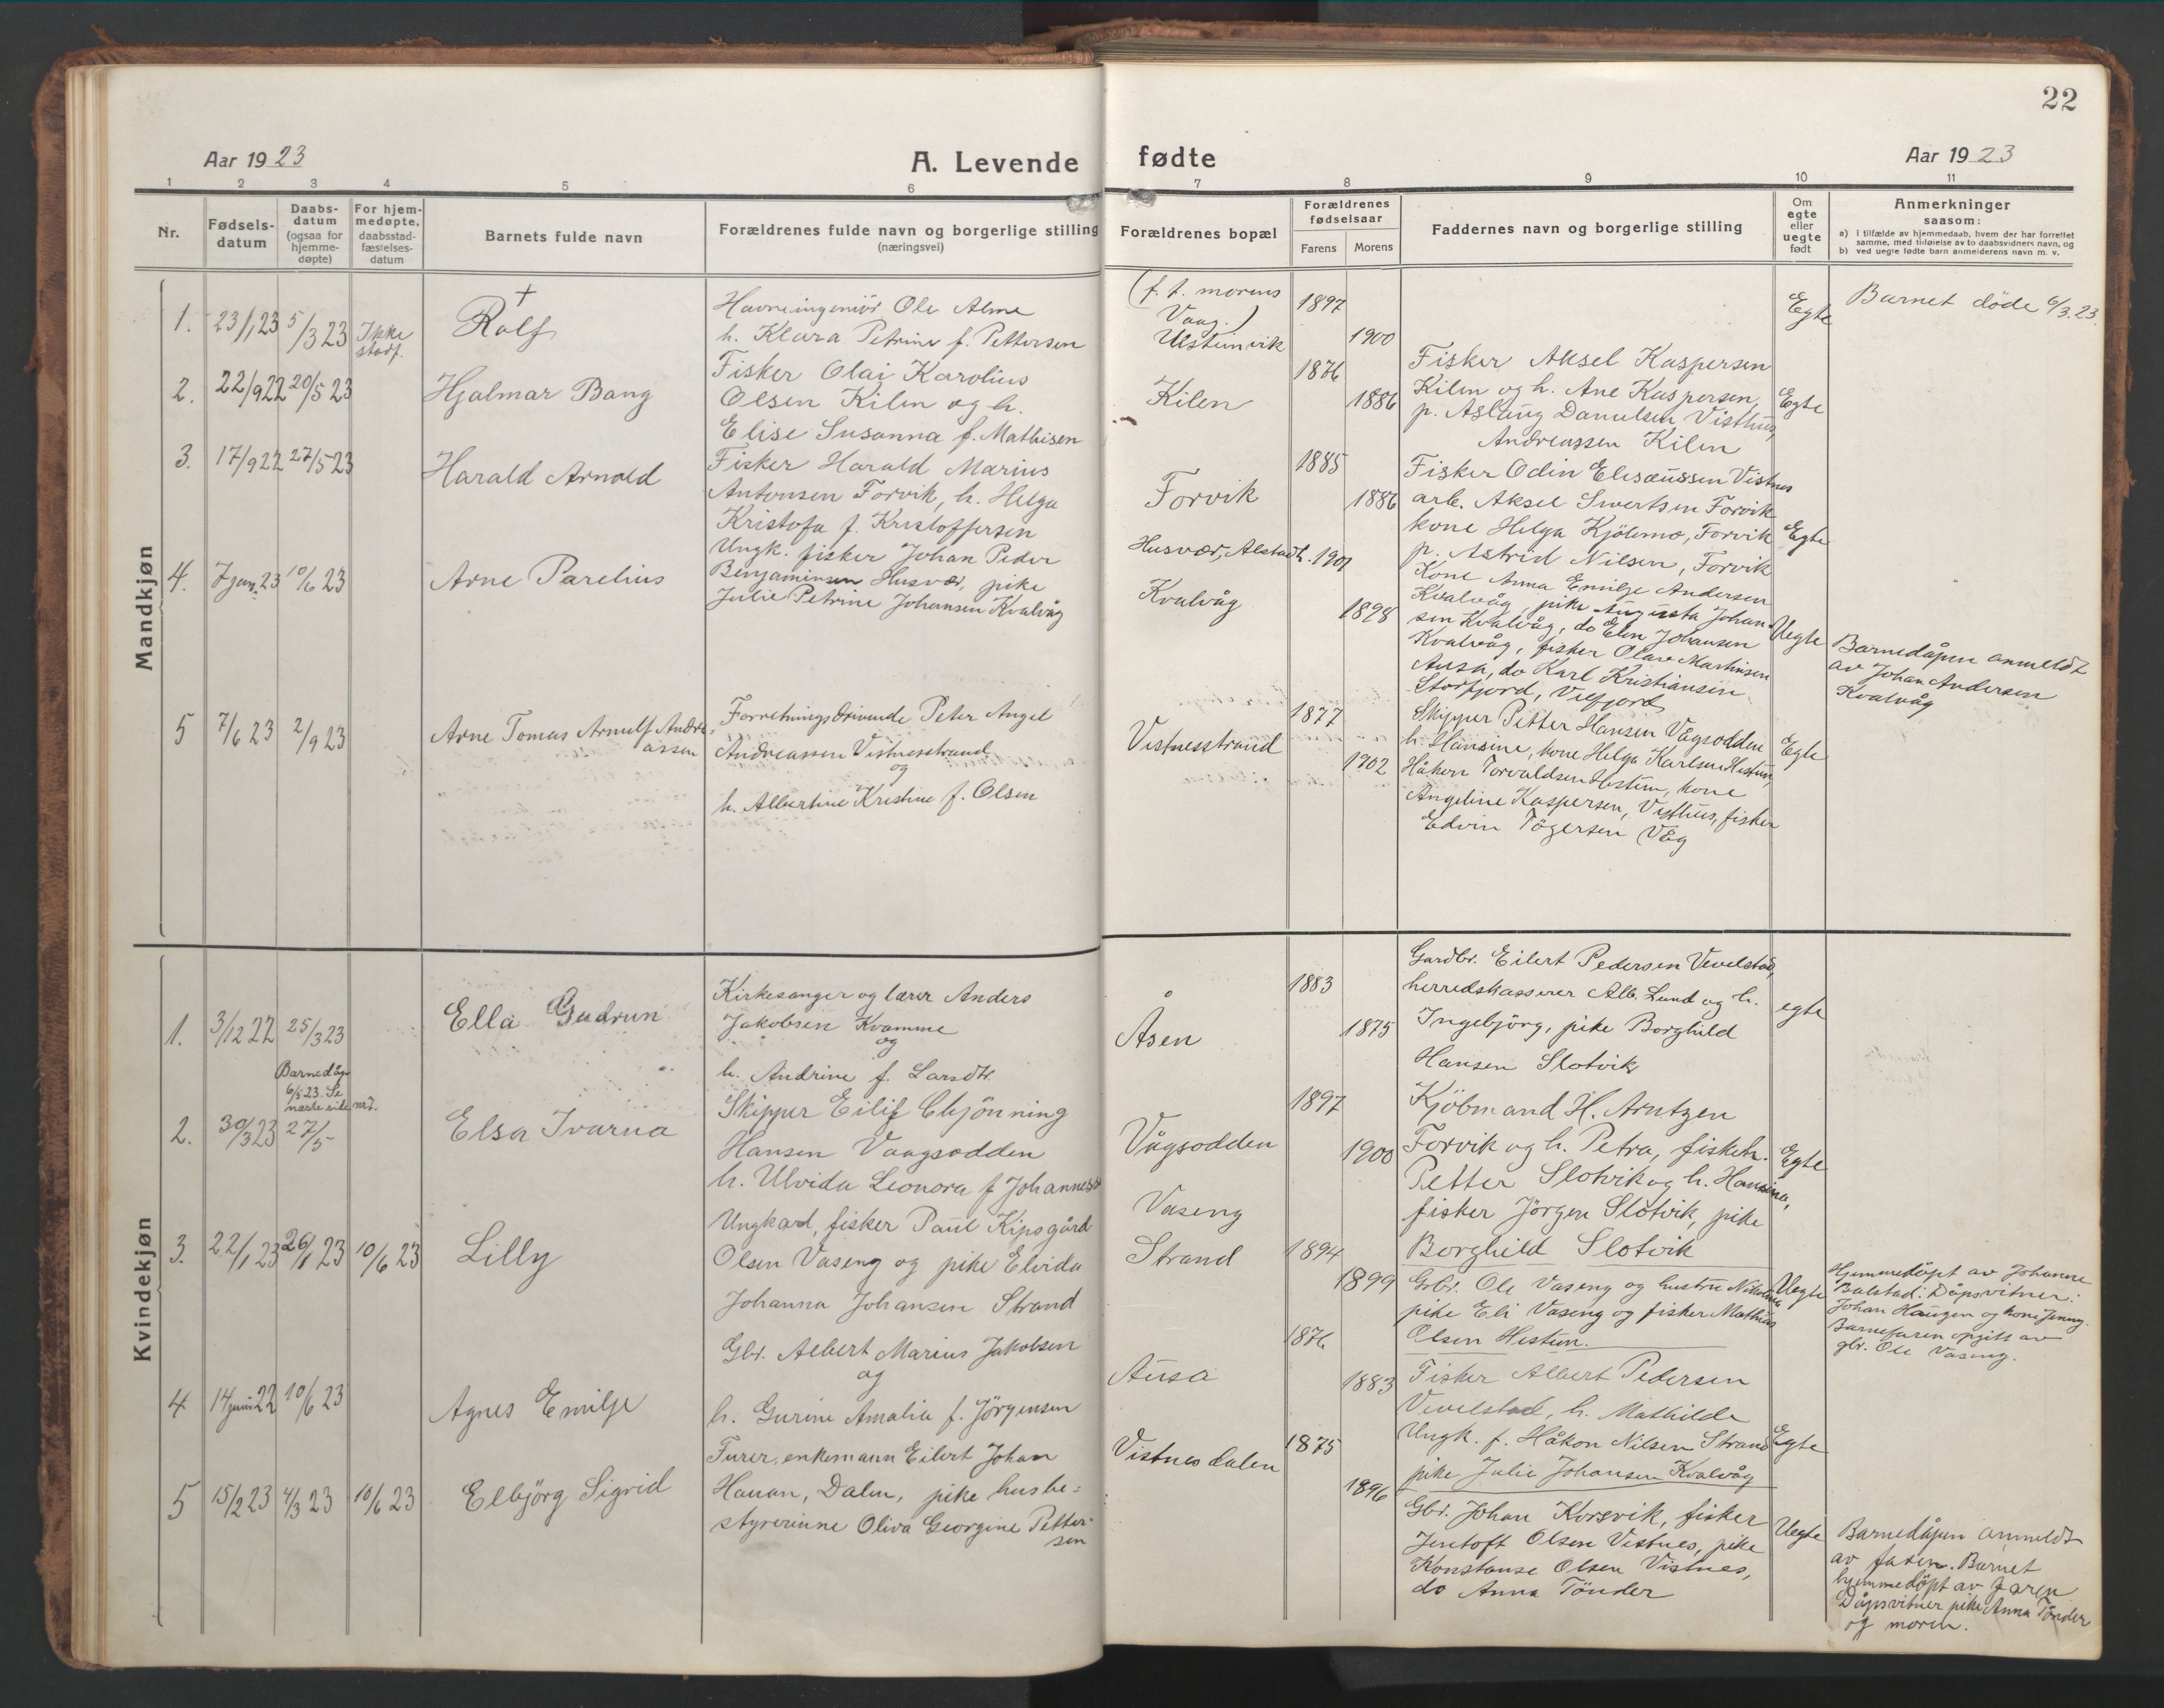 22
Aar 1923
A. Levende fødte
Aar 1923
1 2 3 4 5 6 7 8 9 10 11
Nr.
Fødsels-
datum
Daabs-
datum
(ogsaa for
hjemme-
døpte)
For hjem-
medøpte,
daabsstad-
fæstelses-
datum
Barnets fulde navn
Forældrenes fulde navn og borgerlige stilling
(næringsvei)
Forældrenes bopæl
Forældrenes
fødselsaar
Farens Morens
Faddernes navn og borgerlige stilling
Om
egte
eller
uegte
født
Anmerkninger
saasom:
a) i tilfælde av hjemmedaab, hvem der har forrettet
samme, med tilføielse av to daabsvidners navn, og
b) ved uegte fødte barn anmelderens navn m. v.
Mandkjøn
1. 23/1 23 5/3 23 Ikke
stadf.
+
Rolf
Havneingeniør Ole Alme
h. Klara Petrine f. Pettersen
(f. t. morens
Vaag.)
Ulsteinvik
1897
1900
Egte
Barnet döde 6/3.23.
2. 22/9 22 20/5 23
Hjalmar Bang
Fisker Olai Karolius
Olsen Kilen og h.
Elise Susanna f. Mathisen
Kilen
1876
1886
Fisker Aksel Kaspersen
Kilen og h. Ane Kaspersen,
p. Aslaug Danielsen, Visthus,
Andreassen Kilen
Egte
3. 17/9 22 27/5 23
Harald Arnold
Fisker Harald Marius
Antonsen Forvik, h. Helga
Kristofa f. Kristoffersen
Forvik
1885
1886
Fisker Odin Elisæussen Vistnes
arb. Aksel Sivertsen Forvik
kone Helga Kjölsmo, Forvik
p. Astrid Nilsen, Forvik
Egte
4. 7 jan. 23 10/6 23
Arne Parelius
Ungk. fisker Johan Peder
Benjaminsen Husvær, pike
Julie Petrine Johansen Kvalvåg
Husvær, Alstadh.
Kvalvåg
1901
1898
Kone Anna Emilje Andersen
Kvalvåg, pike Augusta Johan-
sen Kvalvåg, do Elen Johansen
Kvalvåg, fisker Olav Martinsen
Ausa, do Karl Kristiansen
Storfjord, Velfjord
Uegte
Barnedåpen anmeldt
av Johan Andersen
Kvalvåg
5 7/6 23 2/9 23
Arne Tomas Arnulf Andre-
assen
Forretningsdrivende Peter Angel
Andreassen Vistnesstrand
og
h. Albertine Kristine f. Olsen
Vistnesstrand
1877
1902
Skipper Petter Hansen Vågsodden
h. Hansine, kone Helga Karlsen Hestun,
Håkon Torvaldsen Hestun, kone
Angeline Kaspersen, Visthus, fisker
Edvin Tögersen Våg
Egte
Kvindekjøn
1. 3/12 22 25/3 23
Ella Gudrun
Kirkesanger og lærer Anders
Jakobsen Kvamme
og
h. Andrine f. Larsdtr.
Åsen
1883
1875
Gardbr. Eilert Pedersen Vevelstad,
herredskasserer Alb. Lund og h.
Ingebjörg, pike Borghild
Hansen Slotvik
egte
Barnedåp
6/5 23. Se
næste side nr 7.
2. 30/3 23 27/5
Elsa Ivarna
Skipper Eilif Chjönning
Hansen Vaagsodden
h. Ulvida Leonora f. Johanness
Vågsodden
1897
1900
Kjöbmand H. Arntzen
Forvik og h. Petra, fiskeh.
Petter Slotvik og h. Hansina,
fisker Jörgen Slotvik, pike
Borghild Slotvik
Egte
3. 22/1 23 26/1 23 10/6 23
Lilly
Ungkarl, fisker Paul Kipsgård
Olsen Vaseng og pike Elvida
Johanna Johansen Strand
Vaseng
Strand
1894
1899
Gbr. Ole Vaseng og hustru Nikoline
pike Eli Vaseng og fisker Mathias
Olsen Hestun.
Uegte
Hjemmedöpt av Johanne
Balstad. Dåpsvitner:
Johan Haugen og kone Jenny.
Barnefaren opgitt av
gbr. Ole Vaseng.
4 14 juni 22 10/6 23
Agnes Emilje
Gbr. Albert Marius Jakobsen
og
h. Gurine Amalia f. Jörgensen
Ausa
1876
1883
Fisker Albert Pedersen
Vevelstad, h. Mathilde
Ungk. f. Håkon Nilsen Strand
pike Julie Johansen Kvalvåg
Egte
5 15/2 23 4/3 23 10/6 23
Elbjörg Sigrid
Furer, enkemann Eilert Johan
Hanan, Dalen, pike husbe-
styrerinne Oliva Georgine Petter-
sen
Vistnesdalen
1875
1896
Gbr. Johan Korsvik, fisker
Jentoft Olsen Vistnes, pike
Konstanse Olsen Vistnes,
do Anna Tönder
Uegte
Barnedåpen anmeldt
av faren. Barnet
hjemmedöpt av faren
Dåpsvitner pike Anna Tönder
og moren.